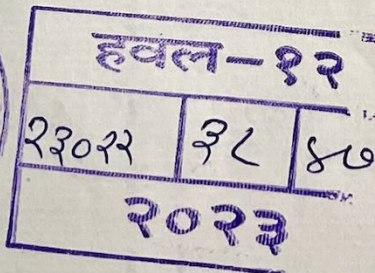 हवल-१२
२३०२२ ३८ ४७
२०२३